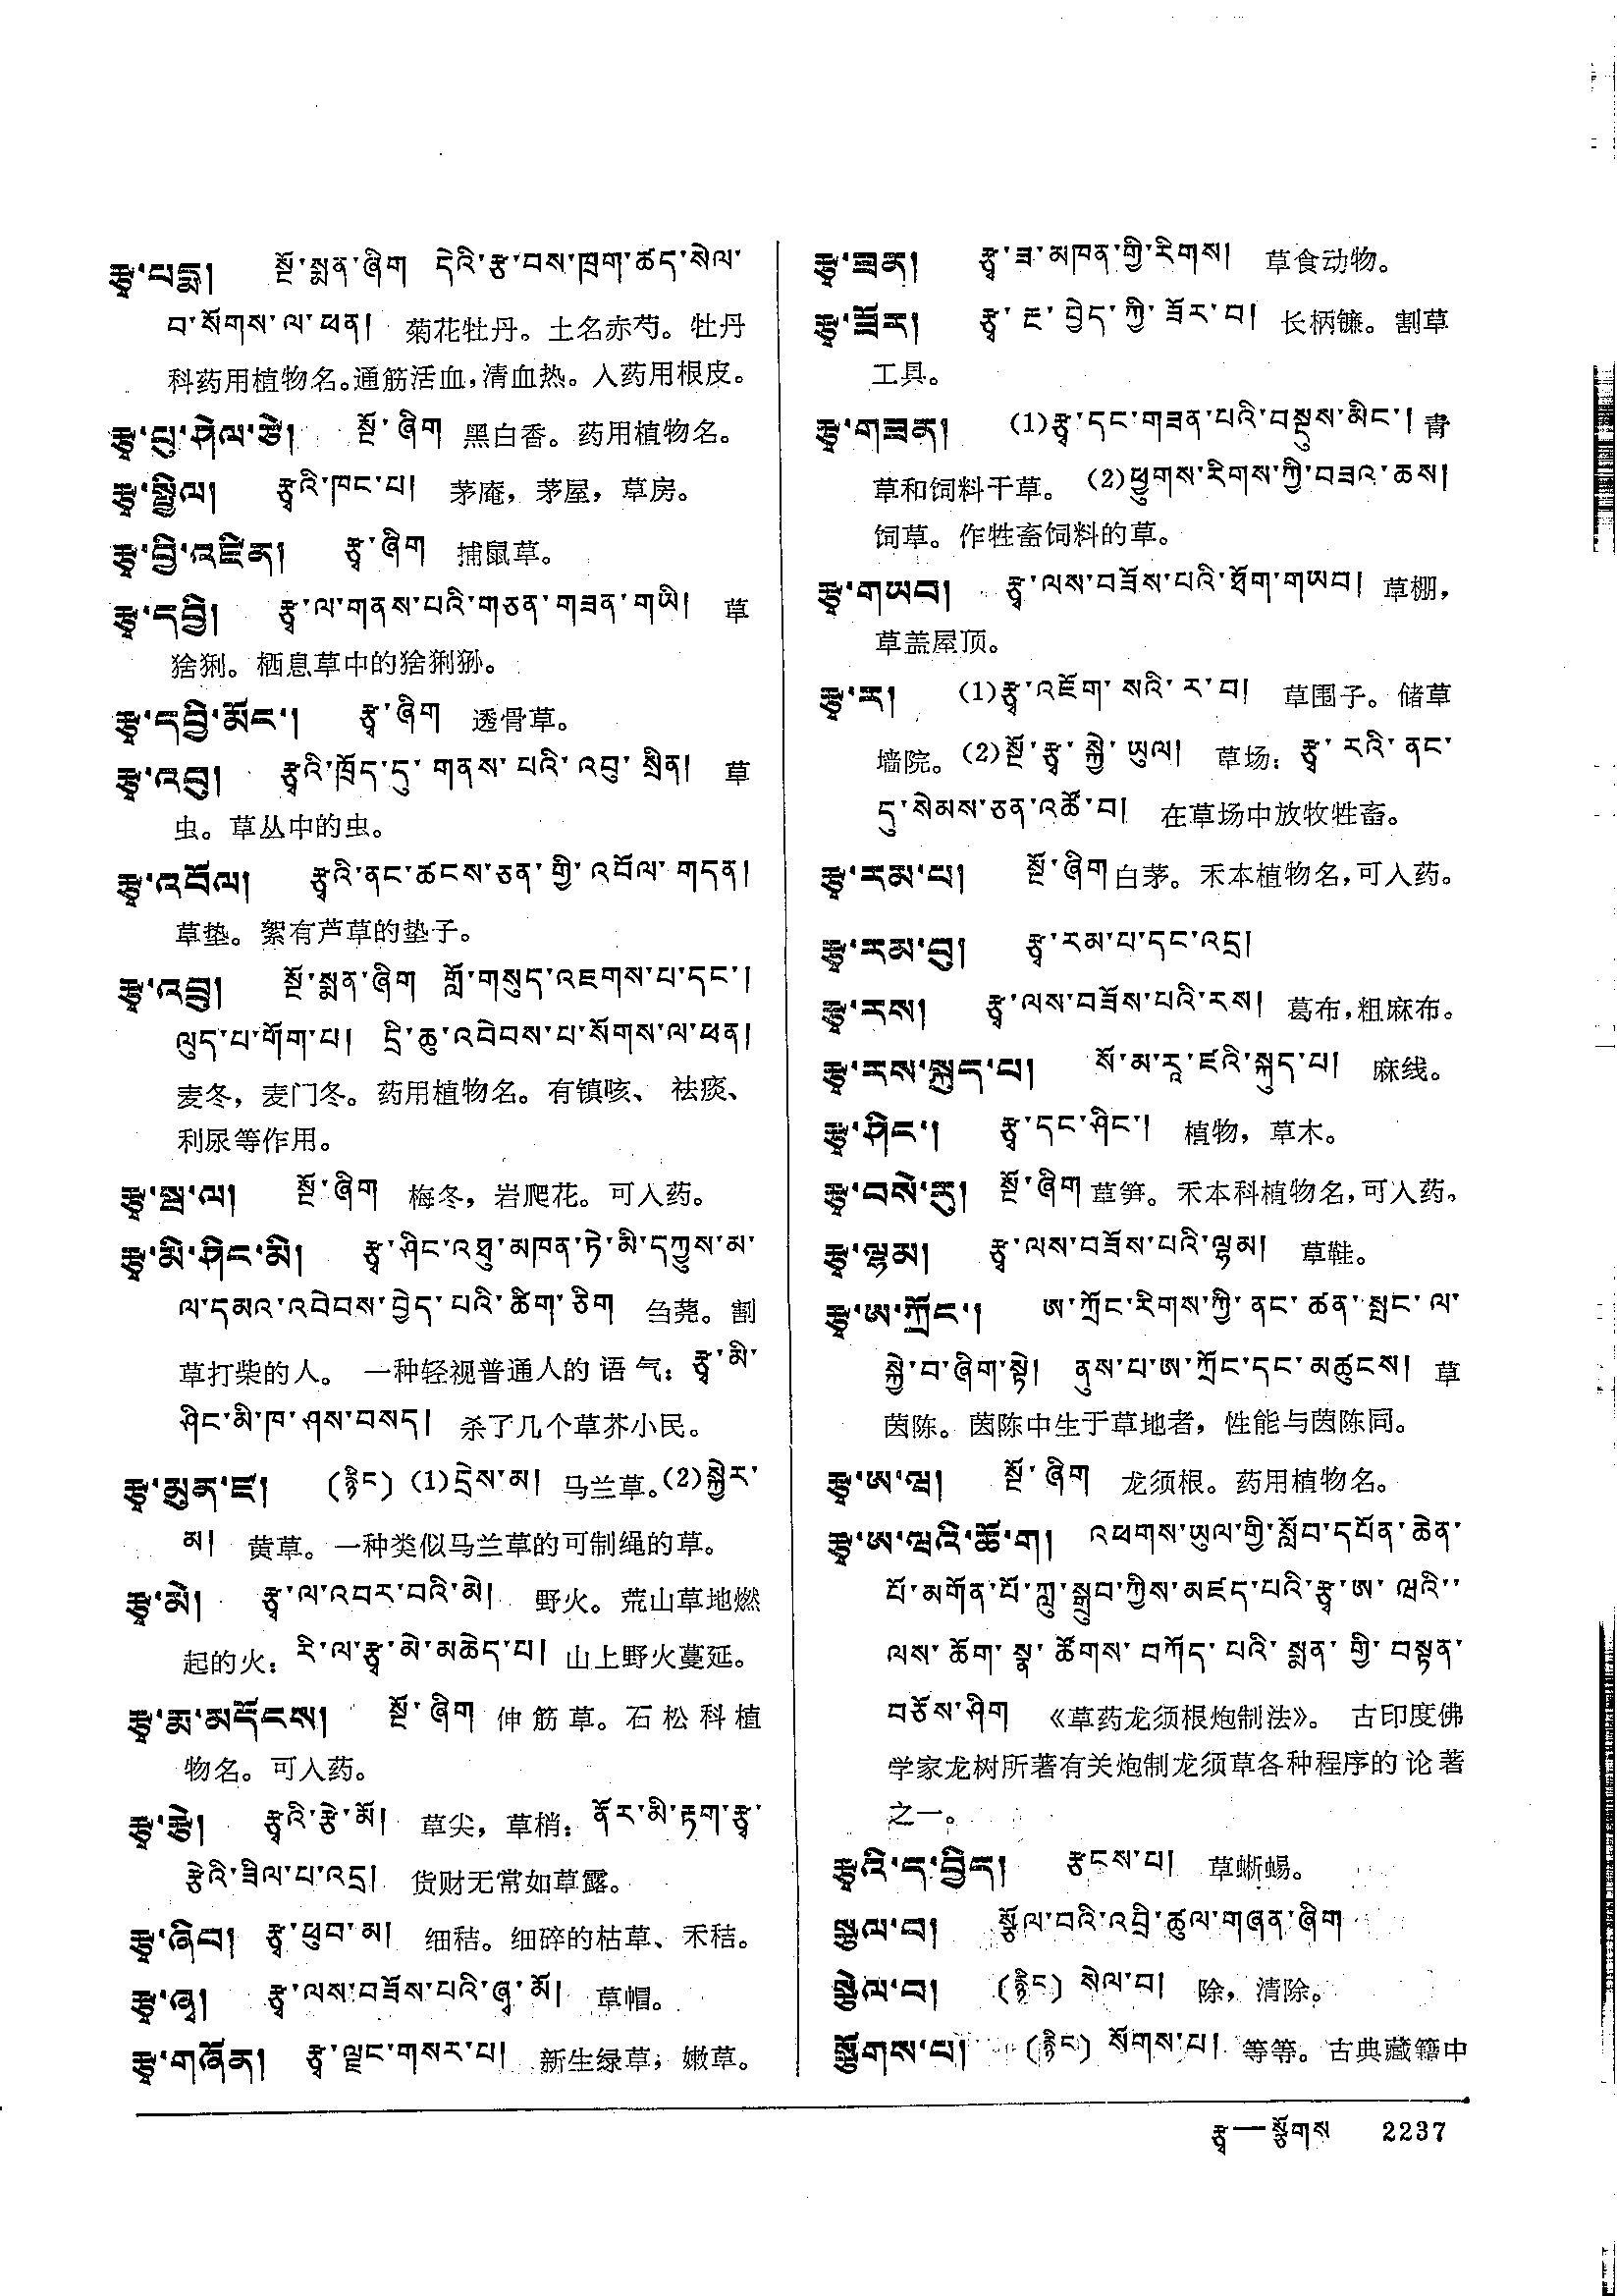 རྩྭ་པདྨ། སྔོ་སྨན་ཞིག དེའི་རྩ་བས་ཁྲག་ཚད་སེལ་
བ་སོགས་ལ་ཕན། 菊花牡丹。土名赤芍。牡丹
科药用植物名。通筋活血,清血热。入药用根皮。
རྩྭ་པུ་ཤེལ་ཙེ། སྔོ་ཞིག 黑白香。药用植物名。
རྩྭ་སྤྱིལ། རྩྭའི་ཁང་པ། 茅庵，茅屋，草房。
རྩྭ་བྱི་འཛིན། རྩྭ་ཞིག 捕鼠草。
རྩྭ་དབྱི། རྩྭ་ལ་གནས་པའི་གཅན་གཟན་གཡི། 草
猞猁。栖息草中的猞猁狲。
རྩྭ་དབྱི་མོང་། རྩྭ་ཞིག 透骨草。
རྩྭ་འབུ། རྩྭའི་ཁྲོད་དུ་གནས་པའི་འབུ་སྲིན། 草
虫。草丛中的虫。
རྩྭ་འབོལ། རྩྭའི་ནང་ཚངས་ཅན་གྱི་འབོལ་གདན།
草垫。絮有芦草的垫子。
རྩྭ་འབྲུ། སྔོ་སྨན་ཞིག གློ་གསུད་འཇགས་པ་དང་།
ལུད་པ་གོག་པ། དྲི་ཆུ་འབེབས་པ་སོགས་ལ་ཕན།
麦冬，麦门冬。药用植物名。有镇咳、祛痰、
利尿等作用。
རྩྭ་སྦྲ་ལ། སྔོ་ཞིག 梅冬，岩爬花。可入药。
རྩྭ་མི་ཤིང་མི། རྩྭ་ཤིང་འཐུ་མཁན་ཏེ་མི་དཀྱུས་མ་
ལ་དམའ་འབེབས་བྱེད་པའི་ཚིག་ཅིག 刍荛。割
草打柴的人。一种轻视普通人的语气：རྩྭ་མི་
ཤིང་མི་ཁ་ཤས་བསད། 杀了几个草芥小民。
རྩྭ་མུན་ཛ། (རྙིང) (1)དྲེས་མ། 马兰草。(2)སྐྱེར་
མ། 黄草。一种类似马兰草的可制绳的草。
རྩྭ་མེ། རྩྭ་ལ་འབར་བའི་མེ། 野火。荒山草地燃
起的火：རི་ལ་རྩྭ་མེ་མཆེད་པ། 山上野火蔓延。
རྩྭ་རྨ་མདོངས། སྔོ་ཞིག 伸筋草。石松科植
物名。可入药。
རྩྭ་རྩེ། རྩྭའི་རྩེ་མོ། 草尖，草梢：ནོར་མི་རྟག་རྩྭ་
རྩེའི་ཟིལ་པ་འདྲ། 货财无常如草露。
རྩྭ་ཞིབ། རྩྭ་ཕུབ་མ། 细秸。细碎的枯草、禾秸。
རྩྭ་ཞྭ། རྩྭ་ལས་བཟོས་པའི་ཞྭ་མོ། 草帽。
རྩྭ་གཞོན། རྩྭ་ལྗང་གསར་པ། 新生绿草；嫩草。
རྩྭ་ཟན། རྩྭ་ཟ་མཁན་གྱི་རིགས། 草食动物。
རྩྭ་ཟོན། རྩྭ་རྔ་བྱེད་ཀྱི་ཟོར་བ། 长柄镰。割草
工具。
རྩྭ་གཟན། (1)རྩྭ་དང་གཟན་པའི་བསྡུས་མིང་། 青
草和饲料干草。(2)ཕྱུགས་རིགས་ཀྱི་བཟའ་ཆས།
饲草。作牲畜饲料的草。
རྩྭ་གཡབ། རྩྭ་ལས་བཟོས་པའི་ཐོག་གཡབ། 草棚，
草盖屋顶。
རྩྭ་ར། (1)རྩྭ་འཇོག་སའི་ར་བ། 草围子。储草
墙院。(2)སྔོ་རྩྭ་སྐྱེ་ཡུལ། 草场：རྩྭ་རའི་ནང་
དུ་སེམས་ཅན་འཚོ་བ། 在草场中放牧牲畜。
རྩྭ་རམ་པ། སྔོ་ཞིག 白茅。禾本植物名,可入药。
རྩྭ་རམ་བུ། རྩྭ་རམ་པ་དང་འདྲ།
རྩྭ་རས། རྩྭ་ལས་བཟོས་པའི་རས། 葛布,粗麻布。
རྩྭ་རས་སྐུད་པ། སོ་མ་རཱ་ཛའི་སྐུད་པ། 麻线。
རྩྭ་ཤིང་། རྩྭ་དང་ཤིང་། 植物，草木。
རྩྭ་བསེ་རུ། སྔོ་ཞིག 草笋。禾本科植物名,可入药。
རྩྭ་ལྷམ། རྩྭ་ལས་བཟོས་པའི་ལྷམ། 草鞋。
རྩྭ་ཨ་ཀྲོང་། ཨ་ཀྲོང་རིགས་ཀྱི་ནང་ཚན་སྤང་ལ་
སྐྱེ་བ་ཞིག་སྟེ། ནུས་པ་ཨ་ཀྲོང་དང་མཚུངས། 草
茵陈。茵陈中生于草地者，性能与茵陈同。
རྩྭ་ཨ་ཝ། སྔོ་ཞིག 龙须根。药用植物名。
རྩྭ་ཨ་ཝའི་ཆོ་ག། འཕགས་ཡུལ་གྱི་སློབ་དཔོན་ཆེན་
པོ་མགོན་པོ་ཀླུ་སྒྲུབ་ཀྱིས་མཛད་པའི་རྩྭ་ཨ་ཝའི་
ལས་ཚོག་སྣ་ཚོགས་བཀོད་པའི་སྨན་གྱི་བསྟན་
བཅོས་ཤིག 《草药龙须根炮制法》。古印度佛
学家龙树所著有关炮制龙须草各种程序的论著
之一。
རྩྭའི་ད་བྱིད། རྩངས་པ། 草蜥蜴。
སྩལ་བ། སྩོལ་བའི་འབྲི་ཚུལ་གཞན་ཞིག
སྩེལ་བ། (རྙིང) སེལ་བ། 除，清除。
སྩོགས་པ། (རྙིང) སོགས་པ། 等等。古典藏籍中
རྩྭ—སྩོགས 2237